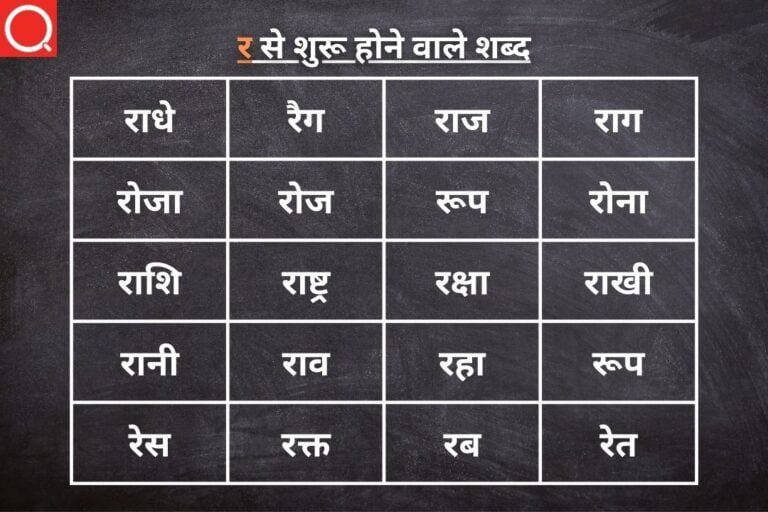 र से शुरू होने वाले शब्द
राधे रैग राज राग
रोजा रोज रूप रोना
राशि राष्ट्र रक्षा राखी
रानी राव रहा रूप
रेस रक्त रब रेत